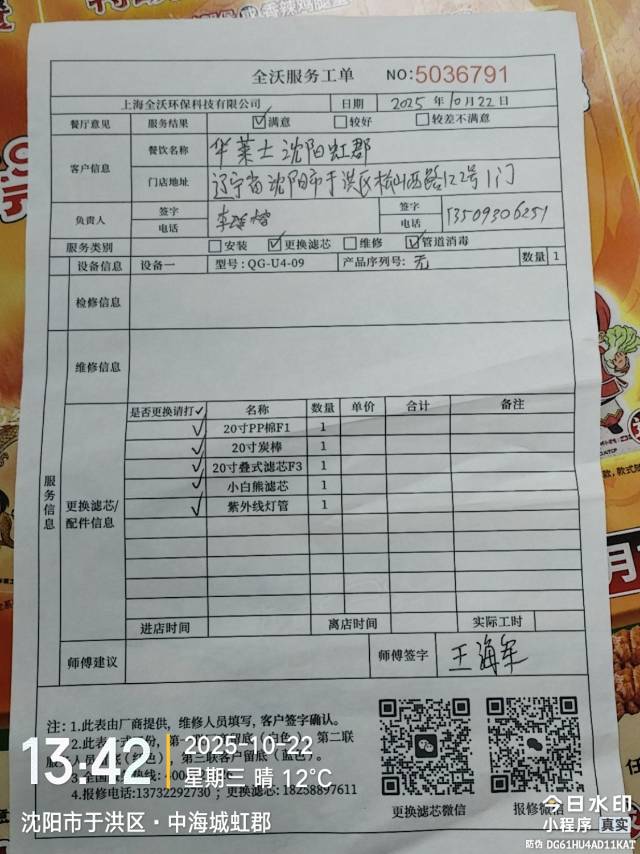 全沃服务工单 NO:5036791
上海全沃环保科技有限公司 日期 2025年10月22日
餐厅意见 服务结果 ☑满意 □较好 □较差不满意
客户信息 餐饮名称 华莱士沈阳虹郡
门店地址 辽宁省沈阳市于洪区松山西路122号1门
负责人 签字 电话 李 签字 电话 13509306251
服务类别 □安装 ☑更换滤芯 □维修 ☑管道消毒
设备信息 设备一 型号:QG-U4-09 产品序列号: 无 数量 1
检修信息
维修信息
服务信息
更换滤芯/配件信息
是否更换请打✓ 名称 数量 单价 合计 备注
✓ 20寸PP棉F1 1
✓ 20寸炭棒 1
✓ 20寸叠式滤芯F3 1
✓ 小白熊滤芯 1
✓ 紫外线灯管 1
进店时间 离店时间 实际工时
师傅建议 师傅签字 王海军
注: 1.此表由厂商提供，维修人员填写，客户签字确认。
2.此表 第二联
第三联客户留底（蓝色）。
4.报修电话:13732292730 ; 更换滤芯: 18258897611
更换滤芯微信 报修微信
13:42
2025-10-22
星期三 晴 12°C
沈阳市于洪区·中海城虹郡
今日水印
小程序 真实
防伪 DG61HU4AD11KAT